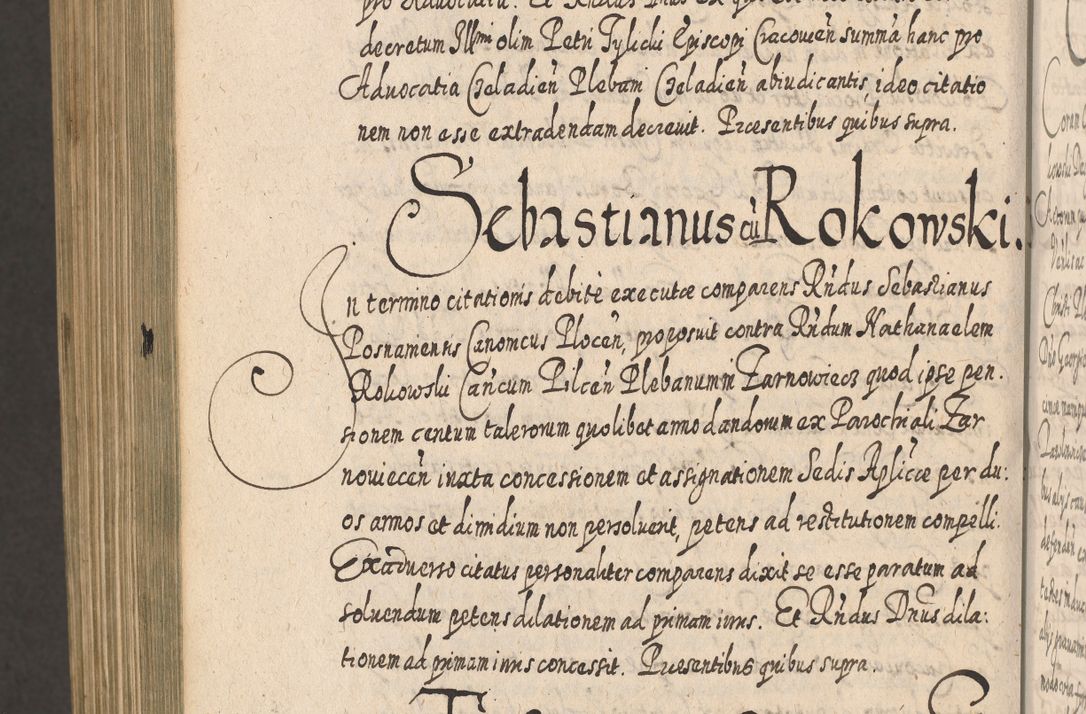 decretum Illmi olim Petri Tylicki Episcopi Cracovien̄ summā hanc pro
Advocatia Czeladień Plebani Czeladień abiudicantis, ideo citatio
nem non esse extradendam decrevit. Præsentibus quibus supra.
Sebastianus cū Rokowski.
In termino citationis debitè executæ comparens Rn̄dus Sebastianus
Posnamensis Canonicus Plocen̄, proposuit contra Rn̄dum Nathanaelem
Rokowski Can̄cum Pilcen̄ Plebanum in Żarnowiecz quod ipse pen.
sionem centum talerorum quolibet anno dandorum ex Parochiali Żar
noviecen̄ iuxta concessionem et assignationem Sedis Aplicæ per du:
os annos et dimidium non persolverit, petens ad restitutionem compelli.
Ex adverso citatus personaliter comparens dixit se esse paratum ad
solvendum petens dilationem ad primam iuris. Et Rn̄dus Dn̄us dila:
tionem ad primam iuris concessit. Præsentibus quibus supra.